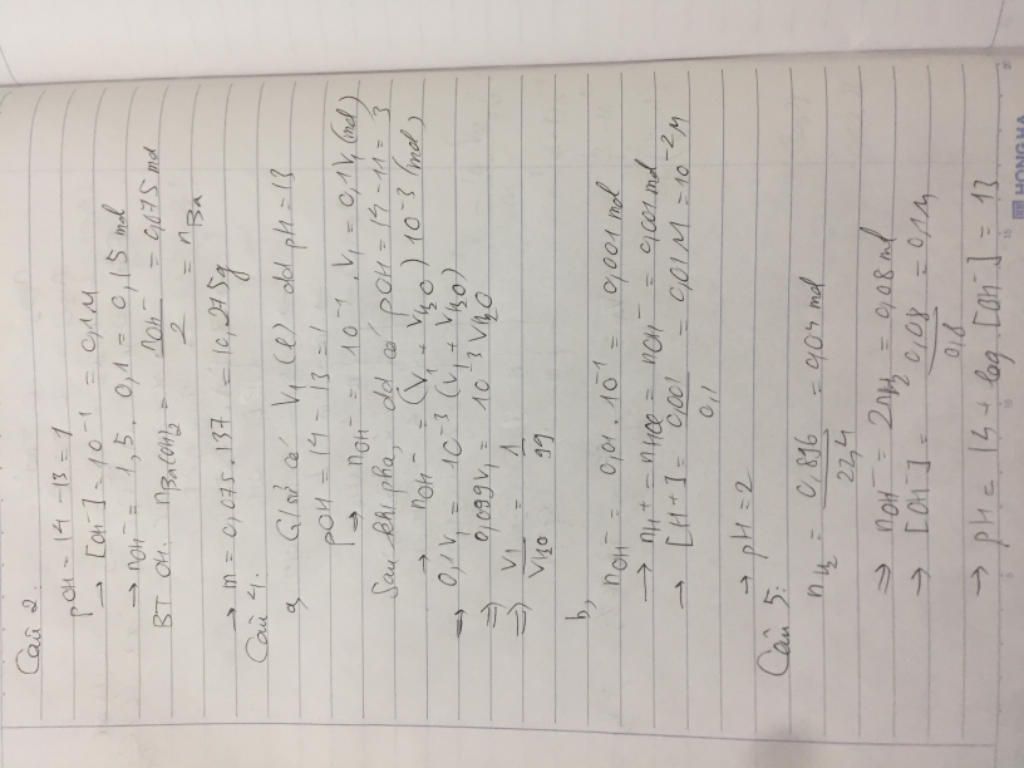 Câu 2:
pOH = 14 - 13 = 1
→ [OH-] = 10^-1 = 0,1M
→ nOH- = 1,5 . 0,1 = 0,15 mol
BT OH: nBa(OH)2 = nOH-/2 = 0,075 mol
= nBa
→ m = 0,075.137 = 10,275g
Câu 4:
a, Giả sử có V1 (l) dd pH = 13
pOH = 14 - 13 = 1
→ nOH- = 10^-1 . V1 = 0,1V1 (mol)
Sau khi pha, dd có pOH = 14 - 11 = 3
→ nOH- = (V1 + VH2O) 10^-3 (mol)
→ 0,1V1 = 10^-3 (V1 + VH2O)
⇒ 0,099V1 = 10^-3 VH2O
⇒ V1/VH2O = 1/99
b,
nOH- = 0,01 . 10^-1 = 0,001 mol
→ nH+ = nHCl = nOH- = 0,001 mol
→ [H+] = 0,001/0,1 = 0,01M = 10^-2 M
→ pH = 2
Câu 5:
nH2 = 0,896/22,4 = 0,04 mol
⇒ nOH- = 2nH2 = 0,08 mol
→ [OH-] = 0,08/0,8 = 0,1M
→ pH = 14 + log [OH-] = 13
HONG HA